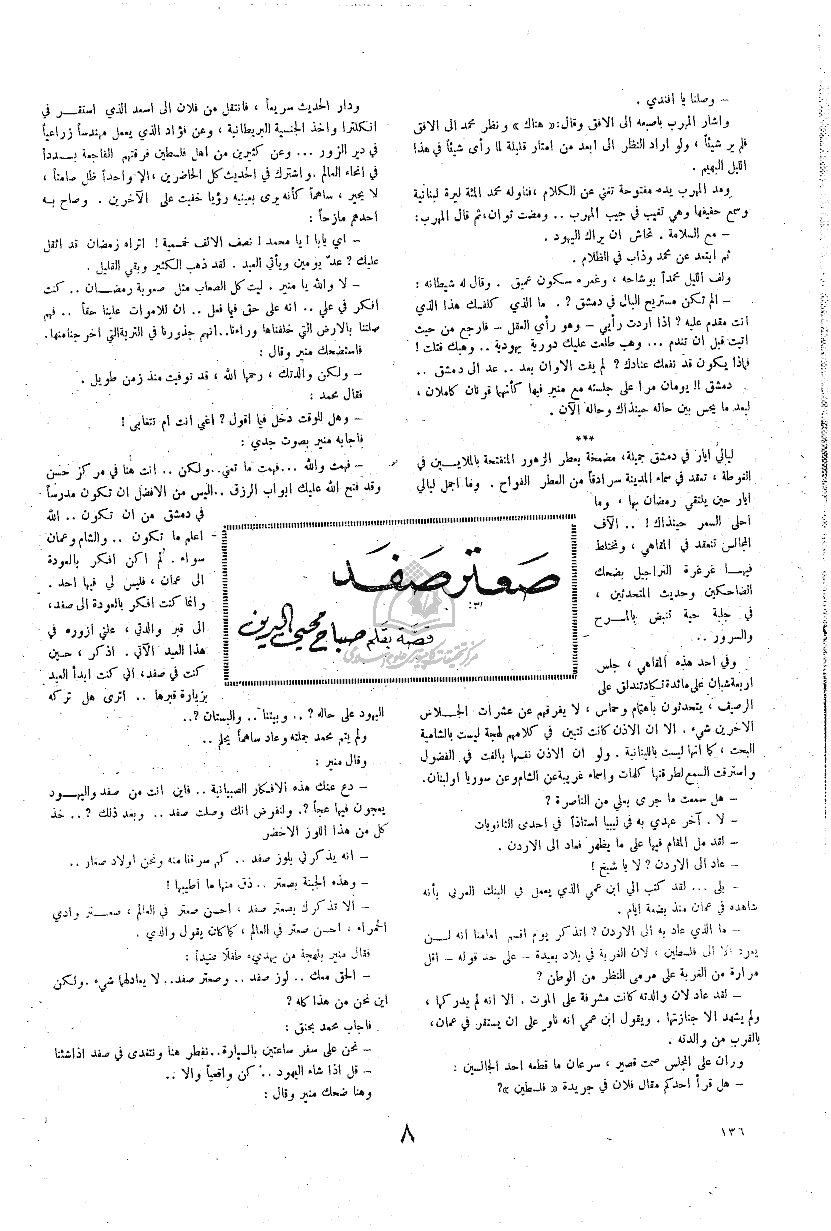 – وصلنا يا افندي .
واشار المهرب باصبعه الى الافق وقال:« هناك » ونظر محمد الى الافق
فلم ير شيئاً ، ولو اراد النظر الى ابعد من امتار قليلة لما رأى شيئاً في هذا
الليل البهيم .
ومد المهرب يده مفتوحة تغني عن الكلام ،فناوله محمد المئة ليرة لبنانية
وسمع حفيفها وهي تغيب في جيب المهرب .. ومضت ثوان، ثم قال المهرب:
– مع السلامة . تحاش ان يراك اليهود .
ثم ابتعد عن محمد وذاب في الظلام .
ولف الليل محمداً بوشاحه ، وغمره سكون عميق . وقال له شيطانه :
– الم تكن مستريح البال في دمشق ? . ما الذي كلفك هذا الذي
انت مقدم عليه ? اذا اردت رأيي – وهو رأي العقل – فارجع من حيث
اتيت قبل ان تندم ... وهب طلعت عليك دورية يهودية .. وهبك قتلت !
فماذا يكون قد نفعك عنادك ? لم يفت الاوان بعد .. عد الى دمشق ..
دمشق !! يومان مرا على جلسته مع منير فيها كأنهما قرنان كاملان ،
لبعد ما يحس بين حاله حينذاك وحاله الآن .
***
ليالي ايار في دمشق جميلة، مضمخة بعطر الزهور المنفتحة بالملايين في
الغوطة ، تعقد في سماء المدينة سرادقاً من العطر الفواح . وما اجمل ليالي
ايار حين يلتقي رمضان بها ، وما
احلى السمر حينذاك ! .. الآف
المجالس تنعقد في المقاهي ، ويختلط
فيها غرغرة التراجيل بضحك
الضاحكين وحديث المتحدثين ،
في جلبة حية تنبض بالمرح
والسرور ..
وفي احد هذه المقاهي ، جلس
اربعة شبان على مائدة تكاد تندلق على
الرصيف ، يتحدثون باهتمام وحماس ، لا يفرقهم عن عشرات الجلاس
الآخرين شيء . الا ان الاذن كانت تتبين في كلامهم لهجة ليست بالشامية
البحت ، كما انها ليست باللبنانية . ولو ان الاذن نفسها بالغت في الفضول
واسترقت السمع لطرقتها كلمات واسماء غريبة عن الشام وعن سوريا او لبنان.
– هل سمعت ما جرى بعلي من الناصرة ?
– لا . آخر عهدي به في ليبيا استاذاً في احدى الثانويات
– لقد مل المقام فيها على ما يظهر فعاد الى الاردن .
– عاد الى الاردن ? لا يا شيخ !
– بلى ... لقد كتب الي ابن عمي الذي يعمل في البنك العربي بأنه
شاهده في عمان منذ بضعة ايام .
– ما الذي عاد به الى الاردن ? اتذكر يوم اقسم امامنا انه لن
يعود الا الى فلسطين ، لان الغربة في بلاد بعيدة – على حد قوله – اقل
مرارة من الغربة على مرمى النظر من الوطن ?
– لقد عاد لان والدته كانت مشرفة على الموت . الا انه لم يدركها ،
ولم يشهد الا جنازتها . ويقول ابن عمي انه ناو على ان يستقر في عمان،
بالقرب من والدته .
وران على المجلس صمت قصير ، سرعان ما قطعه احد الجالسين :
– هل قرأ احدكم مقال فلان في جريدة « فلسطين »?
ودار الحديث سريعاً ، فانتقل من فلان الى اسعد الذي استقر في
انكلترا واخذ الجنسية البريطانية ، وعن فؤاد الذي يعمل مهندساً زراعياً
في دير الزور ... وعن كثيرين من اهل فلسطين فرقتهم الفاجعة بدداً
في انحاء العالم .واشترك في الحديث كل الحاضرين ،الا واحداً ظل صامتاً ،
لا يحير ، ساهماً كأنه يرى بعينيه رؤيا خفيت على الآخرين . وصاح به
احدهم مازحاً :
– اي بابا ! يا محمد ! نصف الالف خمسمية ! اتراه رمضان قد اثقل
عليك ? عدّ يومين ويأتي العيد . لقد ذهب الكثير وبقي القليل .
– لا والله يا منير . ليت كل الصعاب مثل صعوبة رمضان .. كنت
افكر في علي .. انه على حق فيما فعل .. ان للاموات علينا حقاً .. فهم
صلتنا بالارض التي خلفناها وراءنا..انهم جذورنا في التربة التي اخرجنا منها.
فاستضحك منير وقال :
– ولكن والدتك ، رحمها الله ، قد توفيت منذ زمن طويل .
فقال محمد :
– وهل للوقت دخل فيما اقول ? أغبي انت ام تتغابى !
فأجابه منير بصوت جدي :
– فهمت والله ...فهمت ما تعني..ولكن .. انت هنا في مركز حسن
وقد فتح الله عليك ابواب الرزق ..اليس من الافضل ان تكون مدرساً
في دمشق من ان تكون .. الله
اعلم ما تكون .. والشام وعمان
سواء . لم اكن افكر بالعودة
الى عمان ، فليس لي فيها احد .
وانما كنت افكر بالعودة الى صفد،
الى قبر والدتي ، علني ازوره في
هذا العيد الآتي . اذكر ، حين
كنت في صفد، اني كنت ابدأ العيد
بزيارة قبرها .. اترى هل تركه
اليهود على حاله ? .. وبيتنا .. والبستان ?..
ولم يتم محمد جملته وعاد ساهماً يحلم ..
وقال منير :
– دع عنك هذه الافكار الصبيانية .. فاين انت من صفد واليهود
يعجون فيها عجاً ?. ولنفرض انك وصلت صفد .. وبعد ذلك ? .. خذ
كل من هذا اللوز الاخضر
– انه يذكرني بلوز صفد .. كم سرقنا منه ونحن اولاد صغار ..
– وهذه الجبنة بصعتر .. ذق منها ما اطيبها !
– ألا تذكرك بصعتر صفد ، احسن صعتر في العالم ، صعتر وادي
الحمراء ، احسن صعتر في العالم ، كما كان يقول والدي .
فقال منير بلهجة من يهديء طفلًا عنيداً :
– الحق معك .. لوز صفد .. وصعتر صفد.. لا يعادلها شيء .ولكن
اين نحن من هذا كله ?
فأجاب محمد بحنق :
– نحن على سفر ساعتين بالسيارة..نفطر هنا ونتغدى في صفد اذا شئنا
– قل اذا شاء اليهود .. كن واقعياً والا ..
وهنا ضحك منير وقال :
صعتر صفد
قصة بقلم صباح محيي الدين
٨
١٣٦